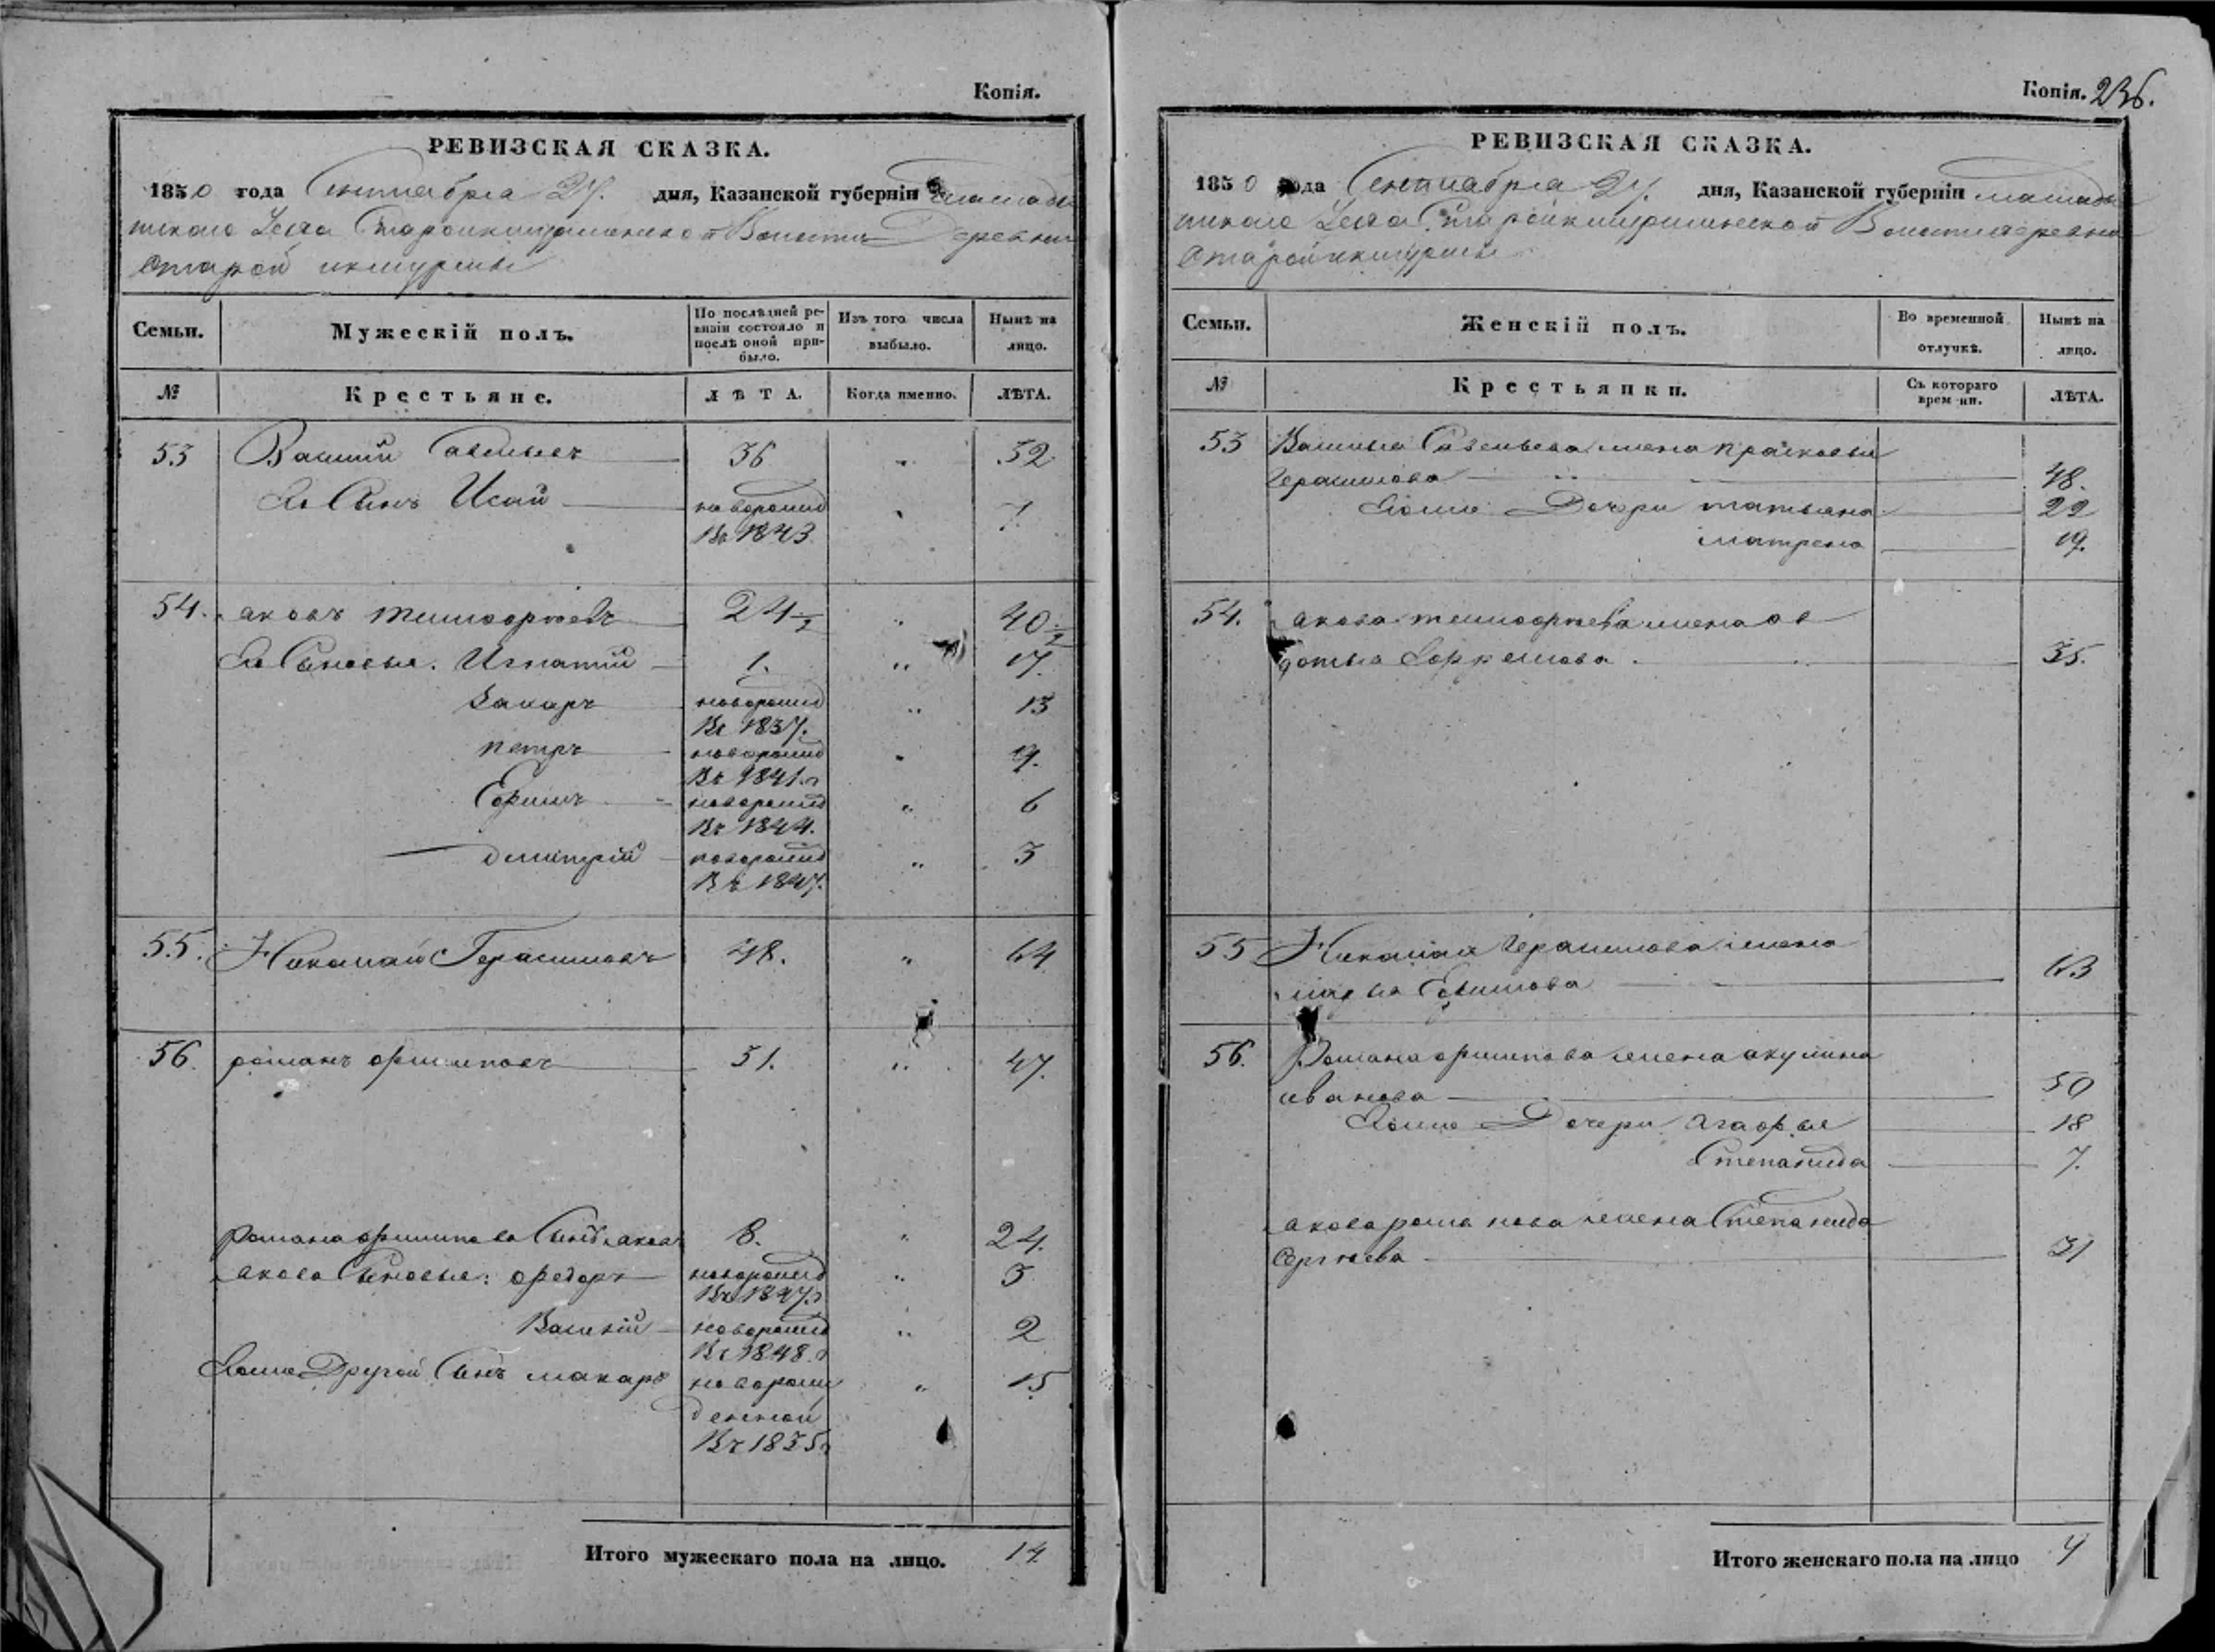 Копія.
РЕВИЗСКАЯ СКАЗКА.
1850 года Сентября 27. дня, Казанской губерніи
Уезда Волости Деревни
Старой
Семьи.
Мужескій полъ.
По послѣдней ре-
визіи состояло и
послѣ оной при-
было.
Изъ того числа
выбыло.
Нынѣ на
лицо.
№
Крестьяне.
ЛѢТА.
Когда именно.
ЛѢТА.
53 Василий Савельевъ 36 „ 52.
Ево Сынъ Исай новорожд „ 7.
Въ 1843.
54. Яковъ Тимофѣевъ 24 1/2 „ 40 1/2
Ево Сыновья. Игнатий 1. „ 17.
Захаръ новорожд „ 13
Въ 1837.
петръ новорожд „ 9.
Въ 1841. г
Ефимъ новорожд „ 6
Въ 1844.
дмитрій новорожд „ 3
Въ 1847.
55. Николай Герасимовъ 48. „ 64
56. романъ филиповъ 31. „ 47.
Романа филипова Сынъ Яковъ 8. „ 24.
Якова Сыновья: федоръ новорожд „ 3
Въ 1847. г
Василій новорожд „ 2
Въ 1848. г
Ромна Другой Сынъ макаръ новорож „ 15
денной
Въ 1835 г
Итого мужескаго пола на лицо. 14
Копія. 236.
РЕВИЗСКАЯ СКАЗКА.
1850 года Сентября 27. дня, Казанской губерніи
Уезда Волости деревни
Старой
Семьи.
Женскій полъ.
Во временной
отлучкѣ.
Нынѣ на
лицо.
№
Крестьянки.
Съ котораго
врем ни.
ЛѢТА.
53 Василья Савельева жена прасковья
Герасимова 48.
Дочери татьяна 22
матрена 19.
54. Якова тимофѣева жена ов
дотья Ефремова 35.
55 Николая Герасимова жена
марья Ефимова 63
56. Романа филипова жена акулина
иванова 50
Дочери Агафья 18
Степанида 7.
Якова романова жена Степанида
Сергѣева 31
Итого женскаго пола на лицо